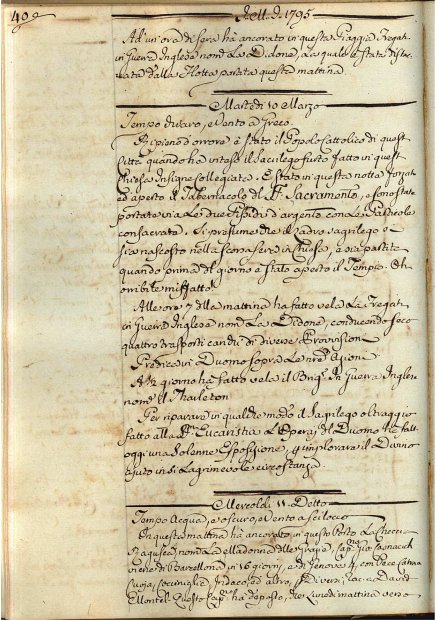 40
Nell. 1795
Ad un'ora di sera ha ancorato in questa Spiaggia la Fregata
in Guerra Inglese nom.ta La Didone, la quale è stata distac=
cata dalla Flotta partita questa mattina.
Martedì 10 Marzo
Tempo chiaro, e Vento a Greco.
Ripieno d'orrore è stato il Popolo Cattolico di quest
Città quando ha inteso il Sacrilego furto fatto in quest
Chiesa Insigne Collegiata. È stato in questa notte forzat
ed aperto il Tabernacolo del SS. Sacramento, e sono state
portate via Le due Pissidi d'argento con le Particole
consacrate. Si presume che il Ladro sacrilego
sia nascosto nella scorsa sera in Chiesa, e sia partito
quando prima di giorno è stato aperto il Tempio. Oh
orribile misfatto!
Alle ore 7 della mattina ha fatto vela La Fregat
in Guerra Inglese nom. La Didone, conducendo seco
quattro trasporti carichi di diverse Provvisioni
Predica in Duomo sopra
A giorno ha fatto vela il Brig. In Guerra Inglese
nom.to il
Per riparare in qualche modo il Sagrilego oltraggio
fatto alla SS. Eucaristia L'Operaj del Duomo fatt
oggi una Solenne Esposizione, implorare il Divino
ajuto in sì Lagrimevole circostanza.
Mercoledì 11 Detto
Tempo Acqua, e oscuro, e Vento a Scilocco
In questa mattina ha ancorato in questo Porto La Checc
Ragusea, nom. La Madonna delle Grazie, Cap.
viene di Barcellona in 16 giorni, e di Genova 4, con
Cuoja, Cocciniglia, Indaco, ed altro, a diversi, racc. a David
Questo Cap. ha deposto, che Lunedì mattina verso